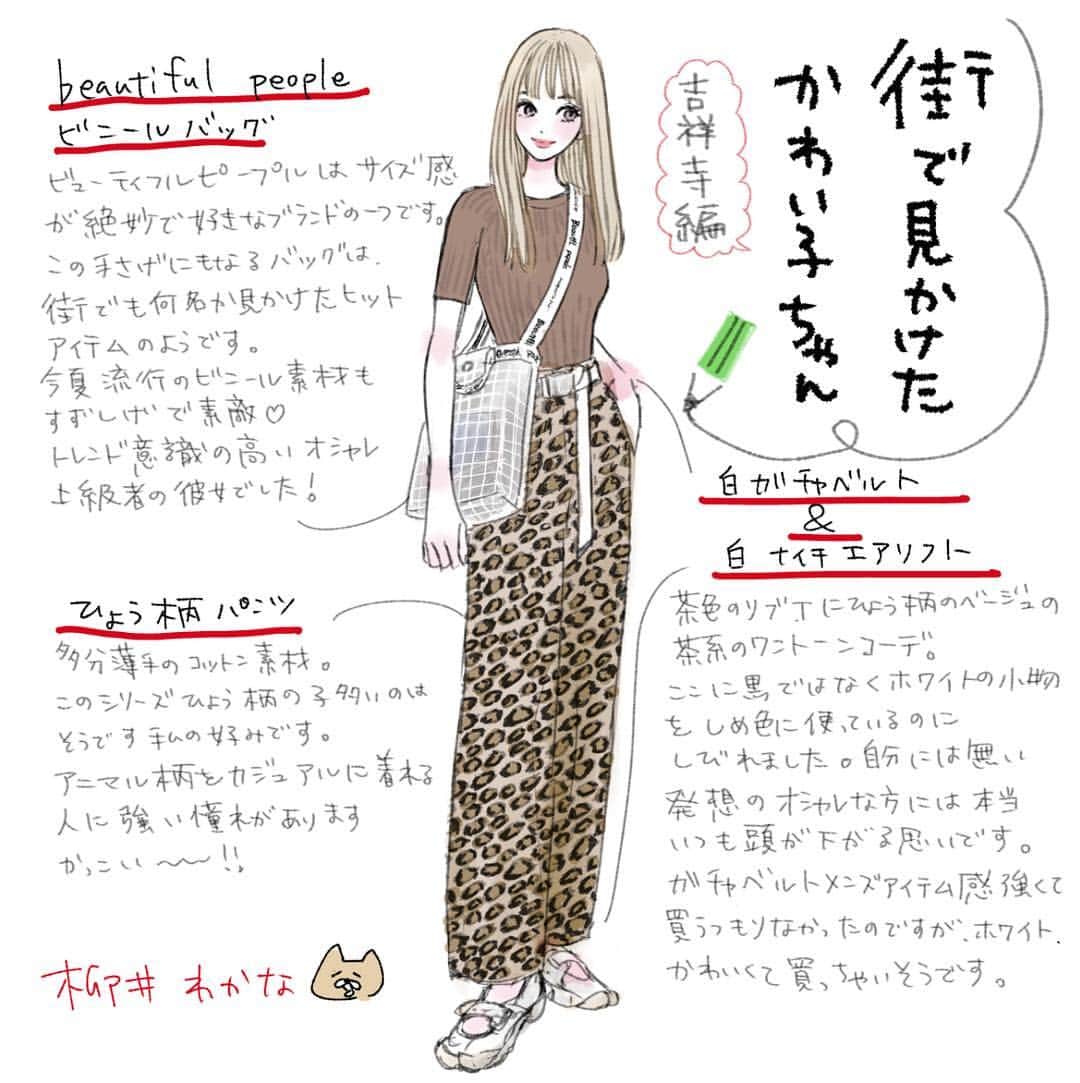 街で見かけた
かわい子ちゃん
吉祥寺編
beautiful people
ビニールバッグ
ビューティフルピープルはサイズ感
が絶妙で好きなブランドの一つです。
この手さげにもなるバッグは、
街でも何名か見かけたヒット
アイテムのようです。
今夏流行のビニール素材も
すずしげで素敵♡
トレンド意識の高いオシャレ
上級者の彼女でした!
白ガチャベルト
&
白ナイキエアリフト
茶色のリブTにひょう柄のベージュの
茶系のワントーンコーデ。
ここに黒ではなくホワイトの小物
をしめ色に使っているのに
しびれました。自分には無い
発想のオシャレな方には本当
いつも頭が下がる思いです。
ガチャベルトメンズアイテム感強くて
買うつもりなかったのですが、ホワイト、
かわいくて買っちゃいそうです。
ひょう柄パンツ
多分薄手のコットン素材。
このシリーズひょう柄の子多いのは
そうです私の好みです。
アニマル柄をカジュアルに着れる
人に強い憧れがあります
かっこい〜〜!!
柳井わかな